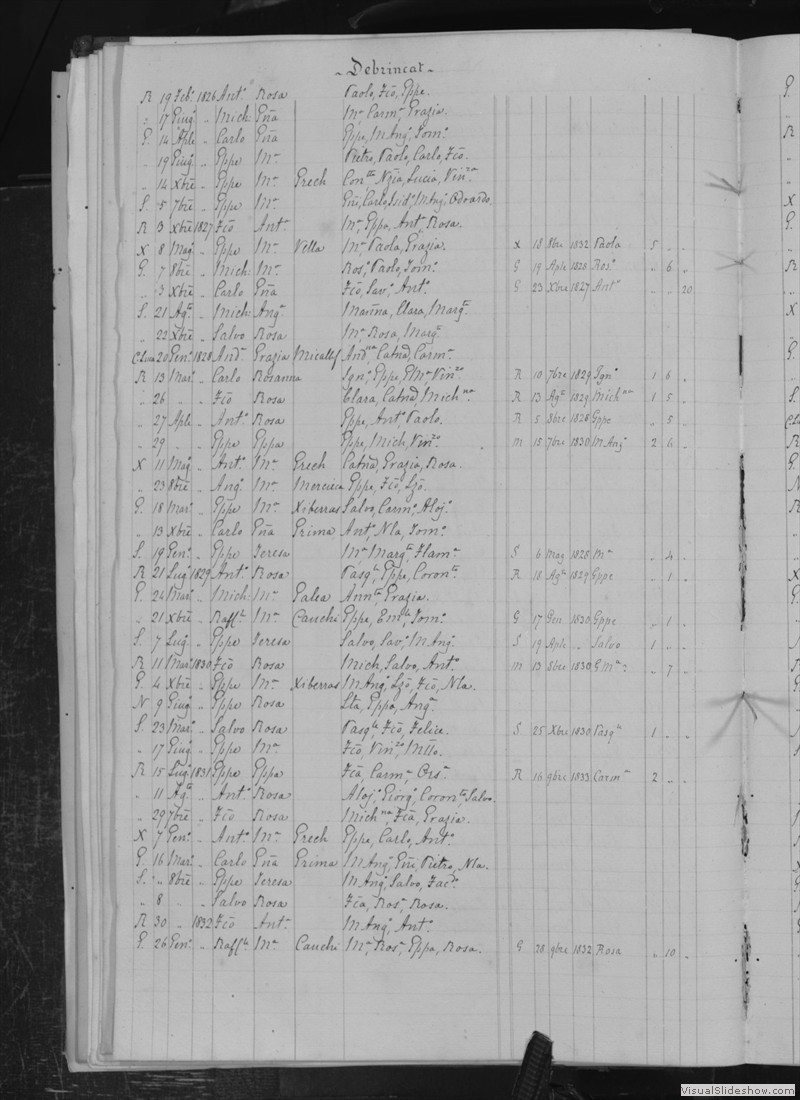 Debrincat
R 19 Feb. 1826 Ant. Rosa Paolo, Fcō, Gppe.
" 17 Giug. " Mich. Gña M.a, Carm.a, Grazia.
G. 14 Aple " Carlo Gña Gppe, M Ang.a, Tom.o
" 19 Giug. " Gppe M.a Pietro, Paolo, Carlo, Fcō.
" 14 Xbre " Gppe M.a Grech Con.tta, Nzia, Lucia, Vin.za
S. 5 7bre " Gppe M.a Gñi, Carlo, Isid.o, M Ang.o, Odoardo.
R 3 Xbre 1827 Fcō Ant.a M.a, Eppa, Ant.a, Rosa.
X 8 Mag. " Gppe M.a Vella M.a, Paola, Grazia. X 18 8bre 1832 Paola 5 " "
G. 7 8bre " Mich. M.a Ros.o, Paolo, Tom.o G 19 Aple 1828 Ros.o " 6 "
" 3 Xbre " Carlo Gña Fcō, Sav.o, Ant.o G 23 Xbre 1827 Ant.o " " 20
S. 21 Ag.o " Mich. Ang.a Marña, Clara, Marg.ta
" 22 Xbre " Salvo Rosa M.a, Rosa, Marg.a
20 Gen. 1828 And. Grazia Micallef And.na, Catna, Carm.a
R 13 Mar. " Carlo Rosanna Ign.o, Gppe, Vin.zo R 10 7bre 1829 Ign.o 1 6 "
" 26 " " Fcō Rosa Clara, Catna, Mich.na R 13 Ag.o 1829 Mich.na 1 5 "
" 27 Aple " Ant. Rosa Gppe, Ant.o, Paolo. R 5 8bre 1828 Gppe " 5 "
" 29 " " Gppe Gppa Gppe, Mich., Vin.zo m 15 7bre 1830 M Ang.o 2 6 "
X 11 Mag. " Ant. M.a Grech Catna, Grazia, Rosa.
" 23 8bre " Ang. M.a Mercieca Gppe, Fcō, Lzō.
G. 18 Mar. " Gppe M.a Xiberras Salvo, Carm.o, Aloj.o
" 13 Xbre " Carlo Gña Grima Ant.o, Nla, Tom.o
S. 19 Gen. " Gppe Teresa M.a, Marg.ta, Flam.a S 6 Mag 1828 M.a " 4 "
R 21 Lug. 1829 Ant. Rosa Pasq.le, Gppe, Coron.to R 18 Ag.o 1829 Gppe " 1 "
G. 24 Mar. " Mich. M.a Galea Ann.ta, Grazia.
" 21 Xbre " Raff.le M.a Cauchi Gppe, Em.le, Tom.o G 17 Gen 1830 Gppe " 1 "
S. 7 Lug. " Gppe Teresa Salvo, Sav.o, M Ang.o S 19 Aple " Salvo 1 " "
R 11 Mar. 1830 Fcō Rosa Mich, Salvo, Ant.o m 13 8bre 1830 " 7 "
G. 4 Xbre " Gppe M.a Xiberras M Ang.o, Lzō, Fcō, Nla.
N 9 Giug. " Gppe Rosa Gppa, Ang.a
S. 23 Mar. " Salvo Rosa Pasq.le, Fcō, Felice. S 25 Xbre 1830 Pasq.le 1 " "
" 17 Giug. " Gppe M.a Fcō, Vin.zo
R 15 Lug. 1831 Gppe Gppa Fca, Carm.a, Ors.a R 16 9bre 1833 Carm.a 2 " "
" 11 Ag.o " Ant. Rosa Aloj.o, Giorg.o, Coron.to, Salvo.
" 29 7bre " Fcō Rosa Mich.na, Fca, Grazia.
X 7 Gen. " Ant. M.a Grech Gppe, Carlo, Ant.o
G. 16 Mar. " Carlo Gña Grima M Ang.o, Gñi, Pietro, Nla.
S. " 8bre " Gppe Teresa M Ang.o, Salvo,
" 8 " " Salvo Rosa Fca, Ros.a, Rosa.
R 30 " 1832 Fcō Ant.a M Ang.a, Ant.a
G. 26 Gen. " Raff.le M.a Cauchi M.a, Ros.a, Gppa, Rosa. G 28 9bre 1832 Rosa " 10 "
VisualSlideshow.com